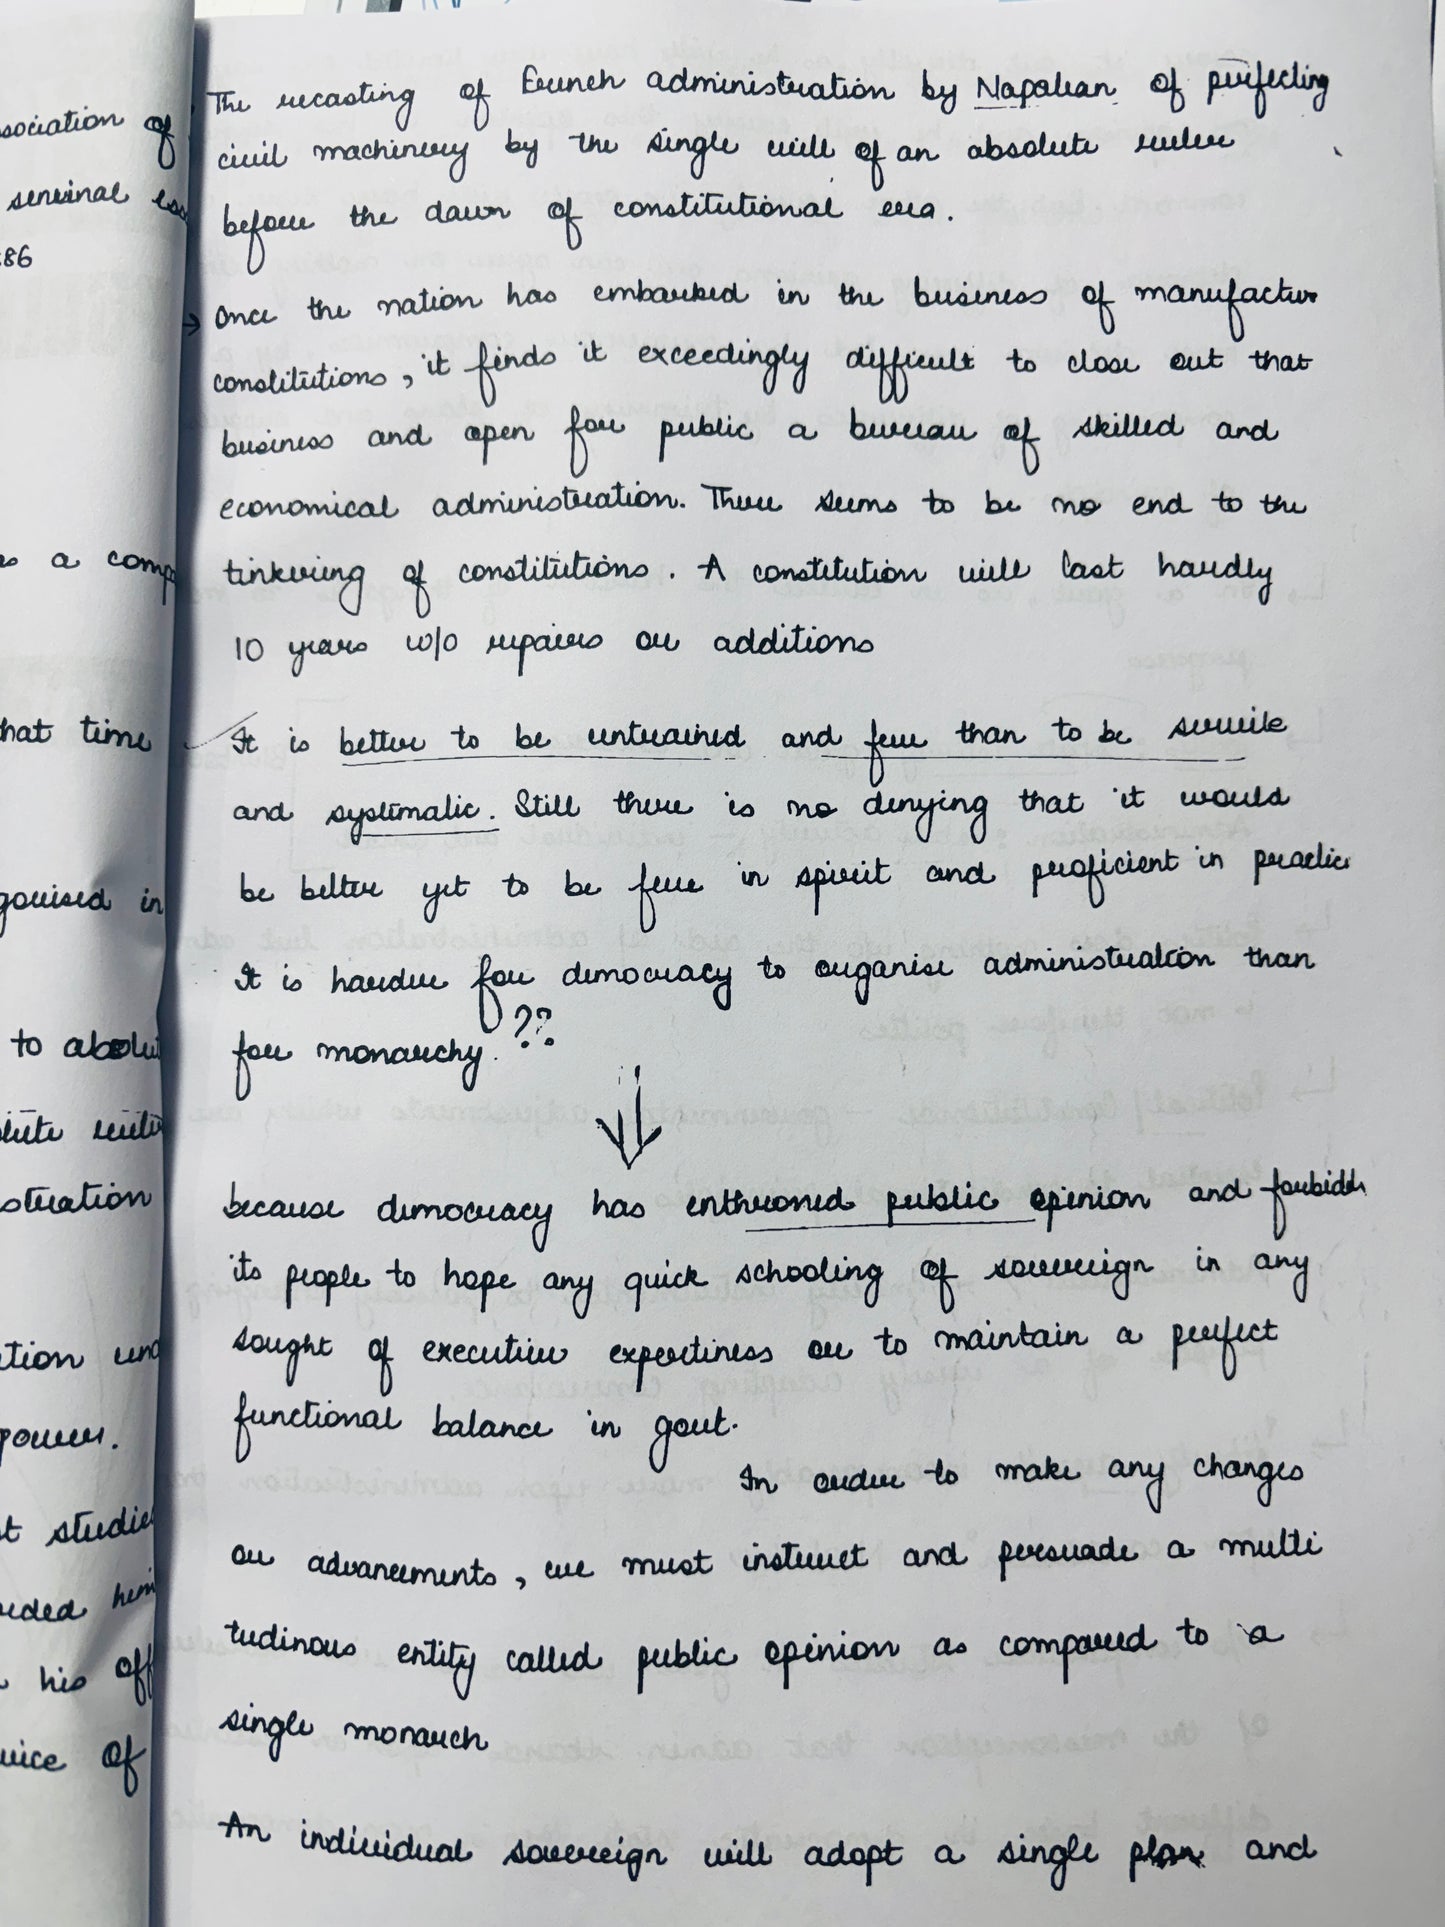 sociation of
seminal ess
86
s a comp
hat time
gorised in
to absolut
lute rule
stration
ation und
power.
t studie
ded him
his off
vice of
The recasting of French administration by Napolean of perfecting
civil machinery by the single will of an absolute ruler
before the dawn of constitutional era.
→ Once the nation has embarked in the business of manufactur
constitutions, it finds it exceedingly difficult to close out that
business and open for public a bureau of skilled and
economical administration. There seems to be no end to the
tinkering of constitutions. A constitution will last hardly
10 years w/o repairs or additions
It is better to be untrained and free than to be servile
and systematic. Still there is no denying that it would
be better yet to be free in spirit and proficient in practic
It is harder for democracy to organise administration than
for monarchy. ??
because democracy has enthroned public opinion and forbidden
its people to hope any quick schooling of sovereign in any
sought of executive expertiness or to maintain a perfect
functional balance in govt.
In order to make any changes
or advancements, we must instruct and persuade a multi
tudinous entity called public opinion as compared to a
single monarch
An individual sovereign will adopt a single plan and